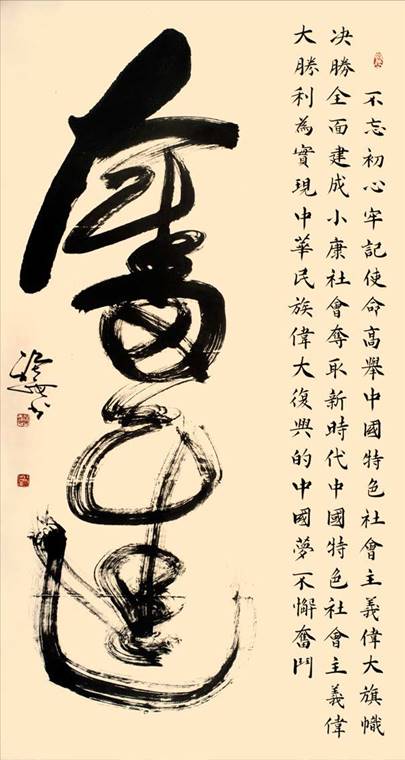 不忘初心牢記使命高舉中國特色社會主義偉大旗幟
决勝全面建成小康社會奪取新時代中國特色社會主義偉
大勝利為實現中華民族偉大復興的中國夢不懈奮鬥